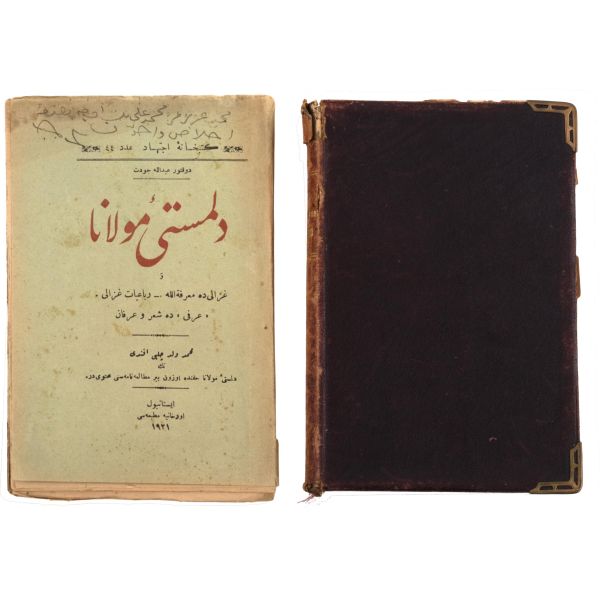 كتبخانهٔ اجتهاد عدد ٤٤
دوقتور عبدالله جودت
دلمستیٔ مولانا
و
غزالی ده معرفة الله — رباعیات غزالی .
« عرفی » ده شعر و عرفان
محمد ولد چلبی افندی
نك
دلمستیٔ مولانا حقنده اوزون بیر مطالعه نامه سی محتوی در.
ایستانبول
اورخانیه مطبعه سی
١٩٢١